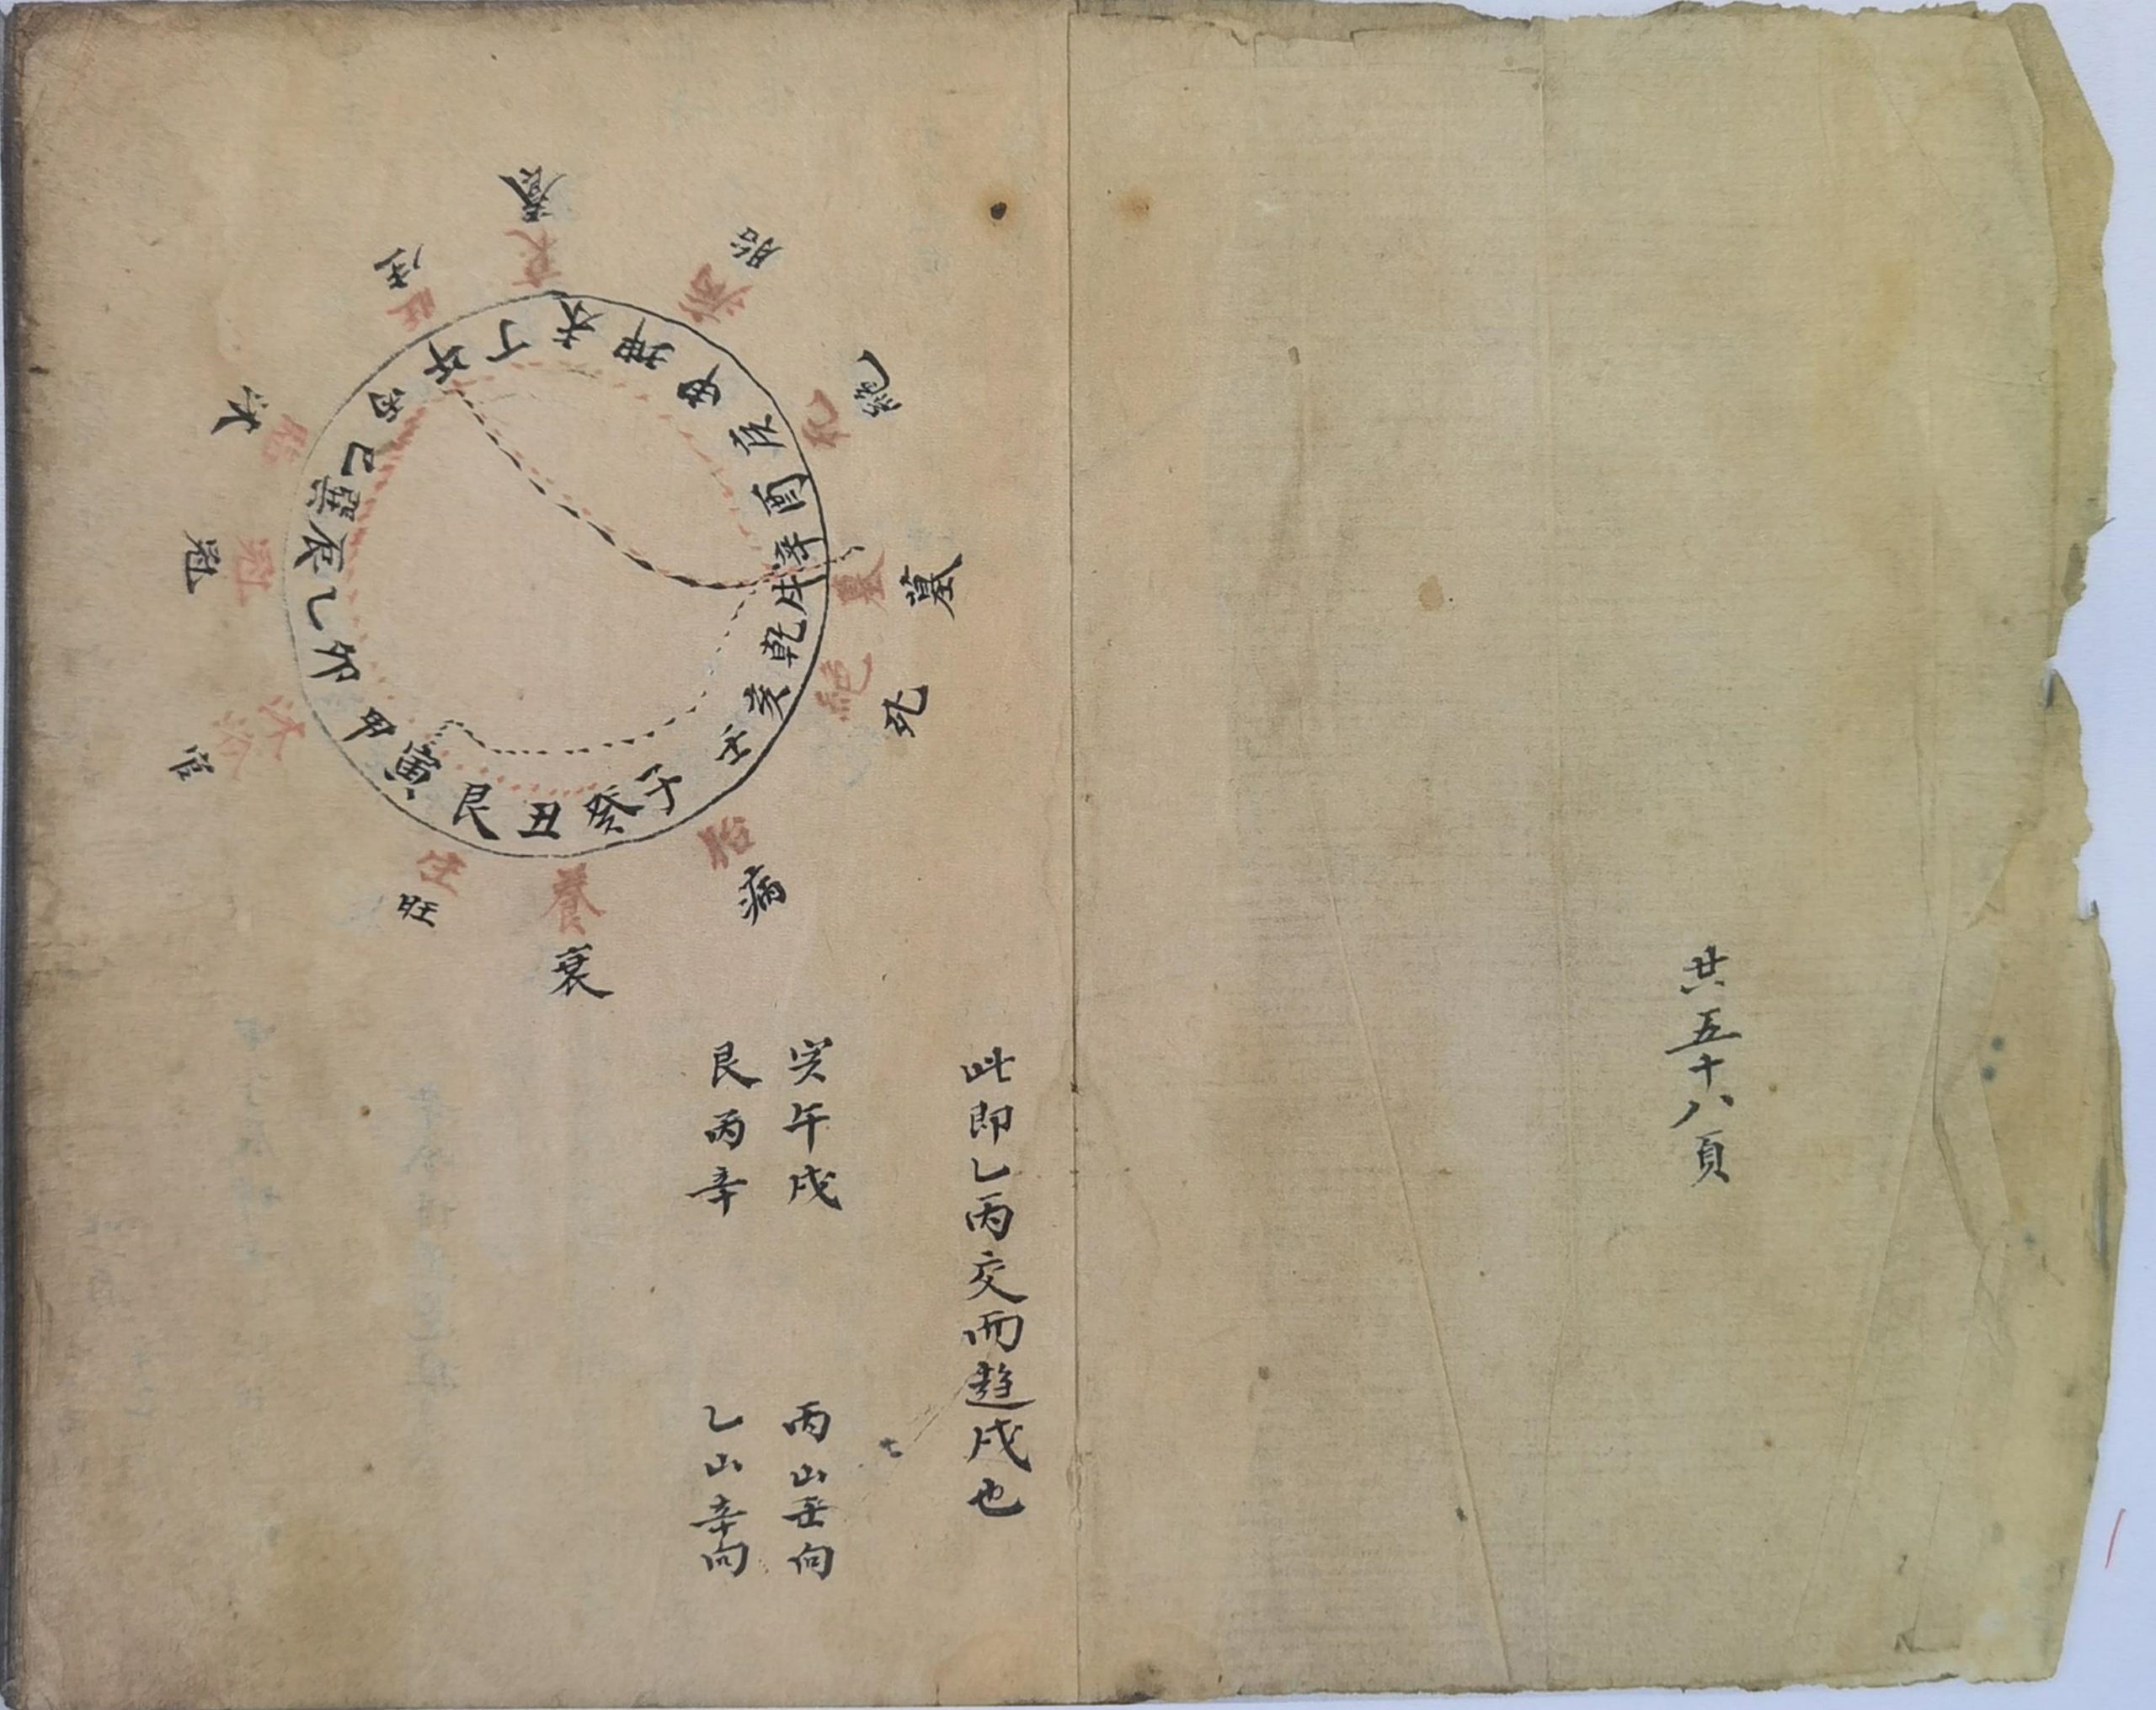 共五十八頁
此即乙丙交而趨戌也
寅午戌
丙山壬向
艮丙辛
乙山辛向
子癸丑艮寅甲卯乙辰巽巳丙午丁未坤申庚酉辛戌乾亥壬
養
生
沐
冠
官
旺
衰
病
死
墓
絕
胎
養
生
沐浴
冠
旺
衰
病
死
墓
絕
胎